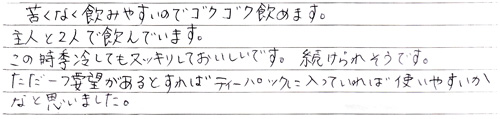 苦くなく飲みやすいのでゴクゴク飲めます。
主人と2人で飲んでいます。
この時季冷してもスッキリしておいしいです。続けられそうです。
ただ一つ要望があるとすればティーパックに入っていれば使いやすいか
なと思いました。